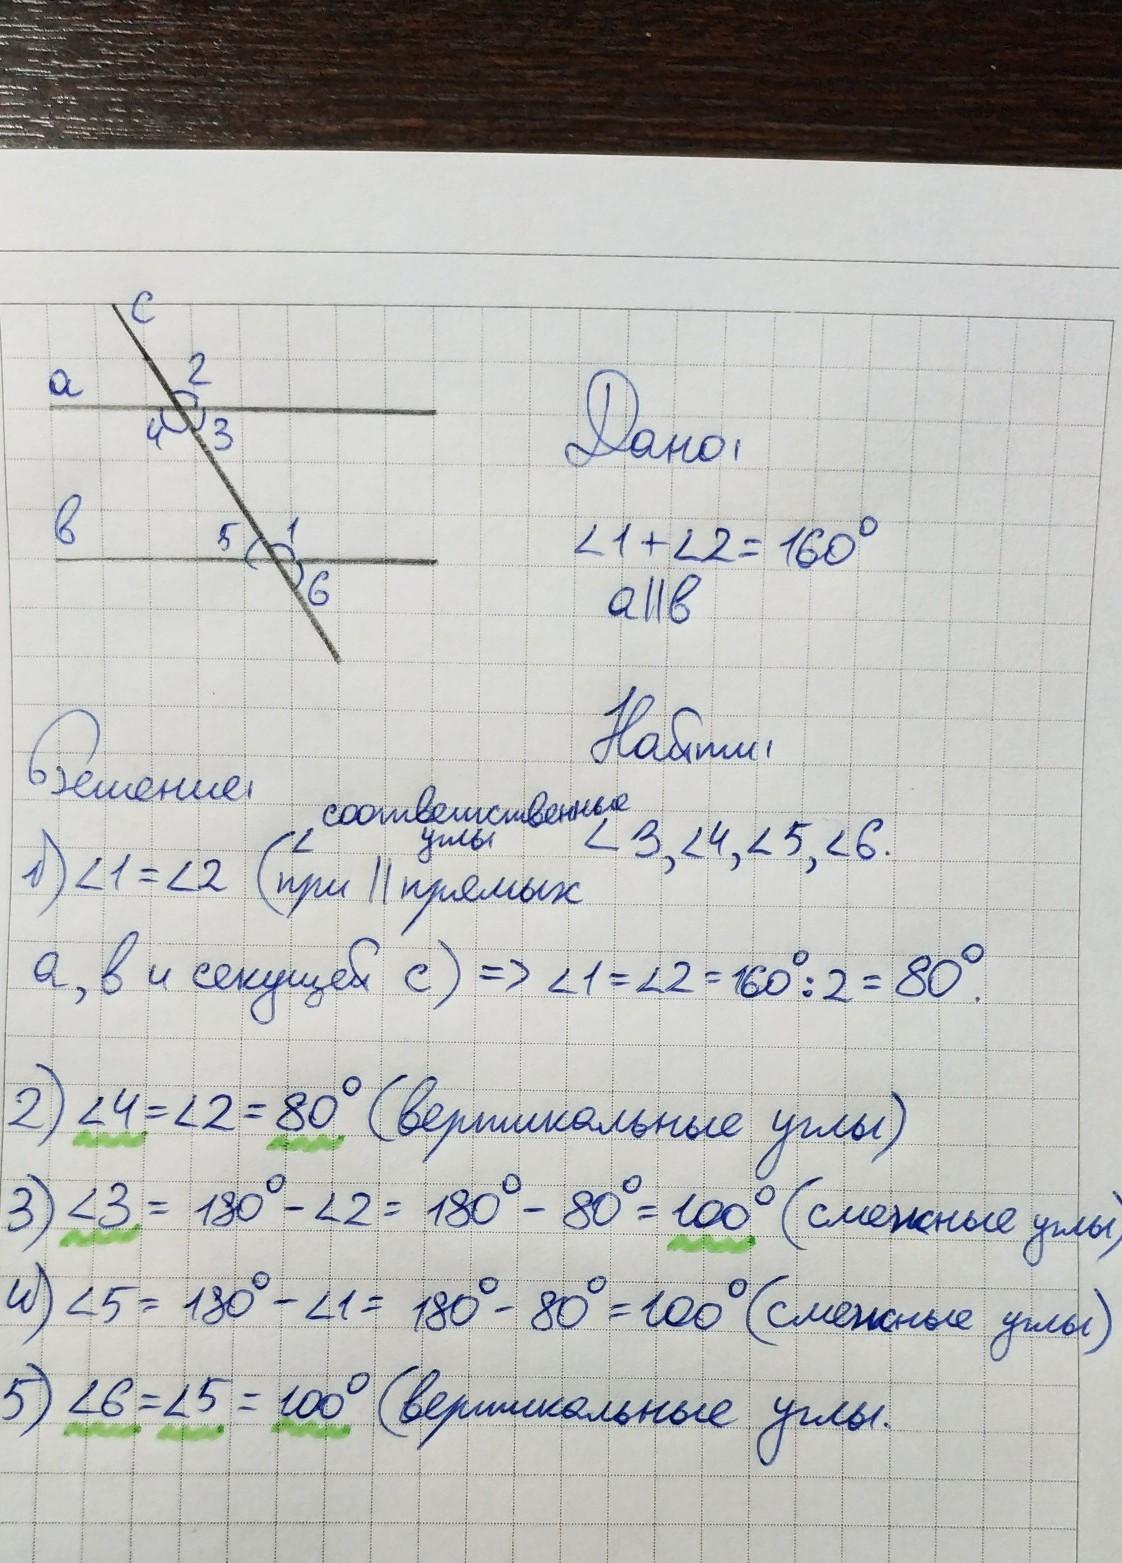 c
2
a
4 3
в
5 1
6
Дано:
∠1+∠2=160°
a||в
Найти:
∠3, ∠4, ∠5, ∠6.
Решение:
1) ∠1=∠2 (∠ соответственные углы
при || прямых
a, в и секущей c) => ∠1=∠2=160°:2=80°.
2) ∠4=∠2=80° (вертикальные углы)
3) ∠3= 180°-∠2= 180°- 80°=100° (смежные углы)
4) ∠5= 180°-∠1= 180°- 80°=100° (смежные углы)
5) ∠6=∠5=100° (вертикальные углы.